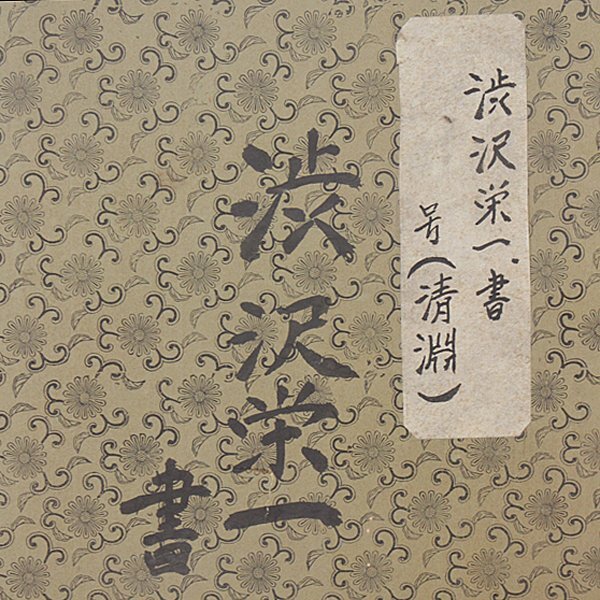 渋沢栄一書
号(清淵)
渋沢栄一
書